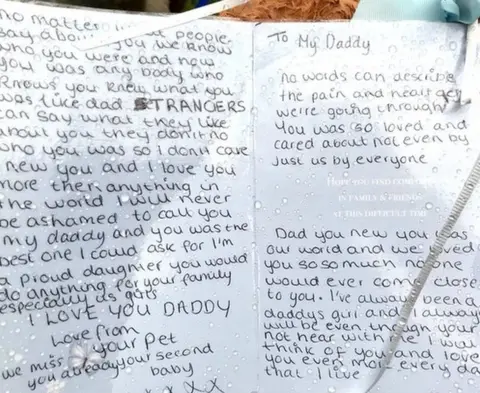 no matter what people
say about you we know
who you were and how
you was any body who
knows you knew what you
was like dad STRANGERS
can say what they like
about you they don't no
who you was so I don't care
I new you and I love you
more then anything in
the world I will never
be ashamed to call you
my daddy and you was the
best one I could ask for I'm
a proud daughter you would
do anything for your family
especially us girls
I LOVE YOU DADDY
Love from
your Pet
we miss
you already your second
baby
x x x x
To My Daddy
no words can describe
the pain and
we're going through
You was so loved and
cared about not even by
just us by everyone
HOPE YOU FIND COMFORT
IN FAMILY & FRIENDS
AT THIS DIFFICULT TIME
Dad you new you was
our world and we loved
you so so much no one
would ever come close
to you. I've always been a
daddys girl and I always
will be even though your
not hear with me I will
think of you and love
you even more every day
that I live